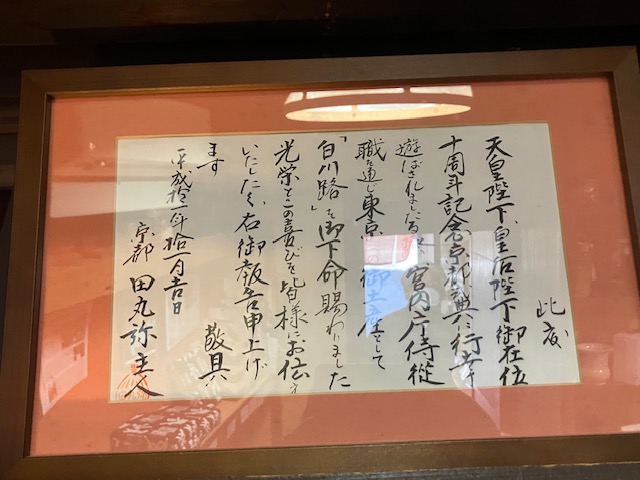 此度
天皇陛下、皇后陛下御在位
十周年記念京都典に行幸
遊ばされました際、宮内庁侍従
職を通じ東京への御土産として
「白川路」を御下命賜わりました
光栄とこの喜びを皆様にお伝え
いたしたく、右御報告申上げ
ます 敬具
平成拾一年拾一月吉日
京都 田丸弥主人